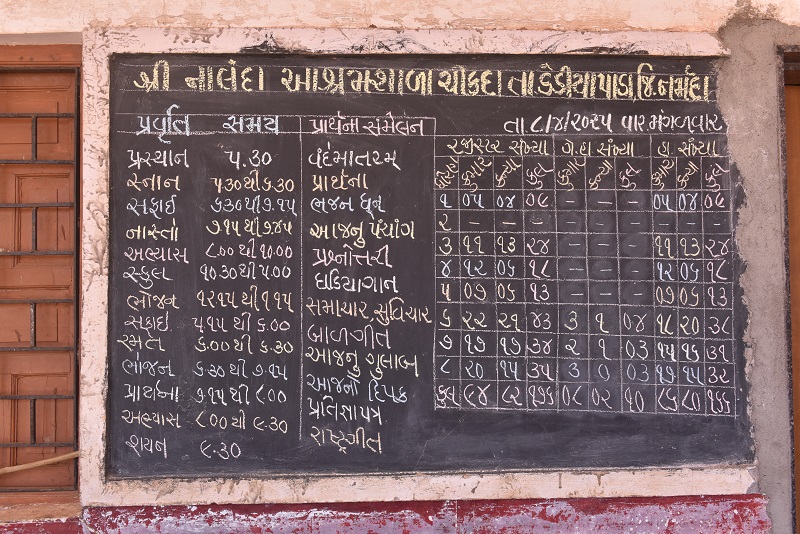 શ્રી નાલંદા આશ્રમશાળા ચીકદા તા ડેડીયાપાડા, જિ. નર્મદા
પ્રવૃતિ સમય
પ્રસ્થાન ૫.૩૦
સ્નાન ૫.૩૦ થી ૬.૩૦
સફાઈ ૬.૩૦ થી ૭.૧૫
નાસ્તો ૭.૧૫ થી ૭.૪૫
અભ્યાસ ૮.૦૦ થી ૧૦.૦૦
સ્કુલ ૧૦.૩૦ થી ૫.૦૦
ભોજન ૧૨.૧૫ થી ૧.૧૫
સફાઈ. ૫.૧૫ થી ૬.૦૦
રમત ૬.૦૦ થી ૬.૩૦
ભોજન ૬.૩૦ થી ૭.૧૫
પ્રાર્થના ૭.૧૫ થી ૮.૦૦
અભ્યાસ ૮.૦૦ થી ૯.૩૦
શયન ૯.૩૦
પ્રાર્થના સંમેલન
વંદેમાતરમ્
પ્રાર્થના
ભજન ધૂન
આજનુ પંચાંગ
પ્રશ્નોત્તરી
ઘડિયાગાન
સમાચાર સુવિચાર
બાળગીત
આજનુ ગુલાબ
આજનો દિપક
પ્રતિજ્ઞા પત્ર
રાષ્ટ્રગીત
તા.૮/૪/૨૦૨૫ વાર મંગળવાર
રજીસ્ટર સંખ્યા ગે.હા સંખ્યા હા સંખ્યા
ધોરણ કુમાર કન્યા કુલ કુમાર કન્યા કુલ કુમાર કન્યા કુલ
૧ ૦૫ ૦૪ ૦૯ – – – ૦૫ ૦૪ ૦૯
૨ – – – – – – – – –
૩ ૧૧ ૧૩ ૨૪ – – – ૧૧ ૧૩ ૨૪
૪ ૧૨ ૦૬ ૧૮ – – – ૧૨ ૦૬ ૧૮
૫ ૦૭ ૦૬ ૧૩ – – – ૦૭ ૦૬ ૧૩
૬ ૨૨ ૨૧ ૪૩ ૩ ૧ ૦૪ ૧૮ ૨૦ ૩૮
૭ ૧૭ ૧૭ ૩૪ ૨ ૧ ૦૩ ૧૫ ૧૬ ૩૧
૮ ૨૦ ૧૫ ૩૫ ૩ ૦ ૦૩ ૧૭ ૧૫ ૩૨
કુલ ૯૪ ૮૨ ૧૭૬ ૦૮ ૦૨ ૧૦ ૮૬ ૮૦ ૧૬૬